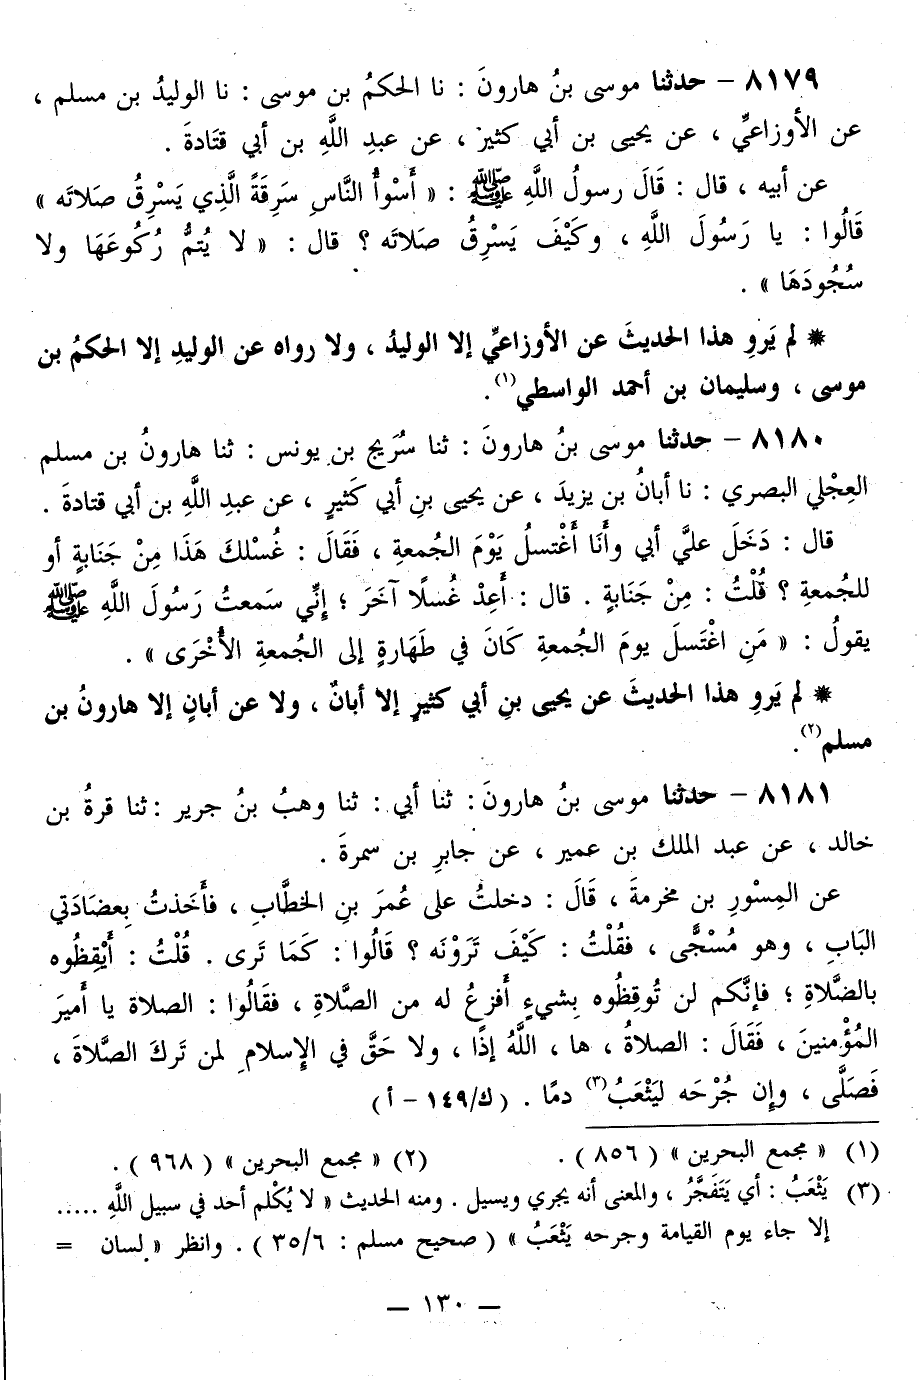 ٨١٧٩ - حدثنا موسى بنُ هارونَ : نا الحكمُ بن موسى : نا الوليدُ بن مسلم ،
عن الأوزاعيِّ ، عن يحيى بن أبي كثير ، عن عبدِ اللَّهِ بن أبي قتَادةَ .
عن أبيه ، قال : قَالَ رسولُ اللَّهِ ﷺ : « أَسْوأُ النَّاسِ سَرِقَةً الَّذِي يَسْرِقُ صلاتَه »
قَالُوا : يا رَسُولَ اللَّهِ ، وكَيْفَ يَسْرِقُ صلاتَه ؟ قال : « لا يُتمُّ رُكُوعَهَا ولا
سُجُودَهَا » .
* لم يَروِ هذا الحديثَ عن الأوزاعيِّ إلا الوليدُ ، ولا رواه عن الوليدِ إلا الحكمُ بن
موسى ، وسليمان بن أحمد الواسطي(١).
٨١٨٠ - حدثنا موسى بنُ هارونَ : ثنا سُرَيج بن يونس : ثنا هارونُ بن مسلم
العِجْلي البصري : نا أبانُ بن يزيدَ ، عن يحيى بنِ أبي كَثيرٍ ، عن عبدِ اللَّهِ بن أبي قتادةَ .
قال : دَخَلَ عليَّ أبي وأَنَا أَغْتسلُ يَوْمَ الجُمعةِ ، فَقَالَ : غُسْلكَ هَذَا مِنْ جَنَابةٍ أو
للجُمعةِ ؟ قُلْتُ : مِنْ جَنَابةٍ . قال : أَعِدْ غُسلًا آخَرَ ؛ إِنِّي سَمعتُ رَسُولَ اللَّهِ ﷺ
يقولُ : « مَنِ اغْتَسلَ يومَ الجُمعةِ كَانَ في طَهَارةٍ إلى الجُمعةِ الأُخْرَى » .
* لم يَروِ هذا الحديثَ عن يحيى بنِ أبي كثيرٍ إلا أبانٌ ، ولا عن أبانٍ إلا هارونُ بن
مسلم(٢).
٨١٨١ - حدثنا موسى بنُ هارونَ : ثنا أبي : ثنا وهبُ بنُ جرير : ثنا قرةُ بن
خالد ، عن عبد الملك بن عمير ، عن جابرِ بن سمرةَ .
عن المِسْورِ بن مخرمةَ ، قَالَ : دخلتُ على عُمرَ بنِ الخطَّابِ ، فأَخذتُ بِعضَادَتي
البَابِ ، وهو مُسْجًّى ، فقُلْتُ : كَيْفَ تَرَوْنَه ؟ قَالُوا : كَمَا تَرى . قُلْتُ : أَيْقِظُوه
بالصَّلاةِ ؛ فإنَّكم لن تُوقِظُوه بِشيءٍ أَفزعُ له من الصَّلاةِ ، فقَالُوا : الصلاة يا أَميرَ
المُؤْمنينَ ، فَقَالَ : الصلاةُ ، ها ، اللَّهُ إذًا ، ولا حَقَّ في الإِسلامِ لمن تَركَ الصَّلاةَ ،
فَصَلَّى ، وإِن جُرْحَه ليَثْعَبُ(٣) دمًا . ( ك/١٤٩ - أ )
(١) « مجمع البحرين » ( ٨٥٦ ) . (٢) « مجمع البحرين » ( ٩٦٨ ) .
(٣) يَثْعَبُ : أي يَتَفَجَّرُ ، والمعنى أنه يجري ويسيل . ومنه الحديث « لا يُكْلم أحد في سبيل اللَّهِ .....
إلا جاء يوم القيامة وجرحه يَثْعَبُ » ( صحيح مسلم : ٣٥/٦ ) . وانظر « لسان =
— ١٣٠ —